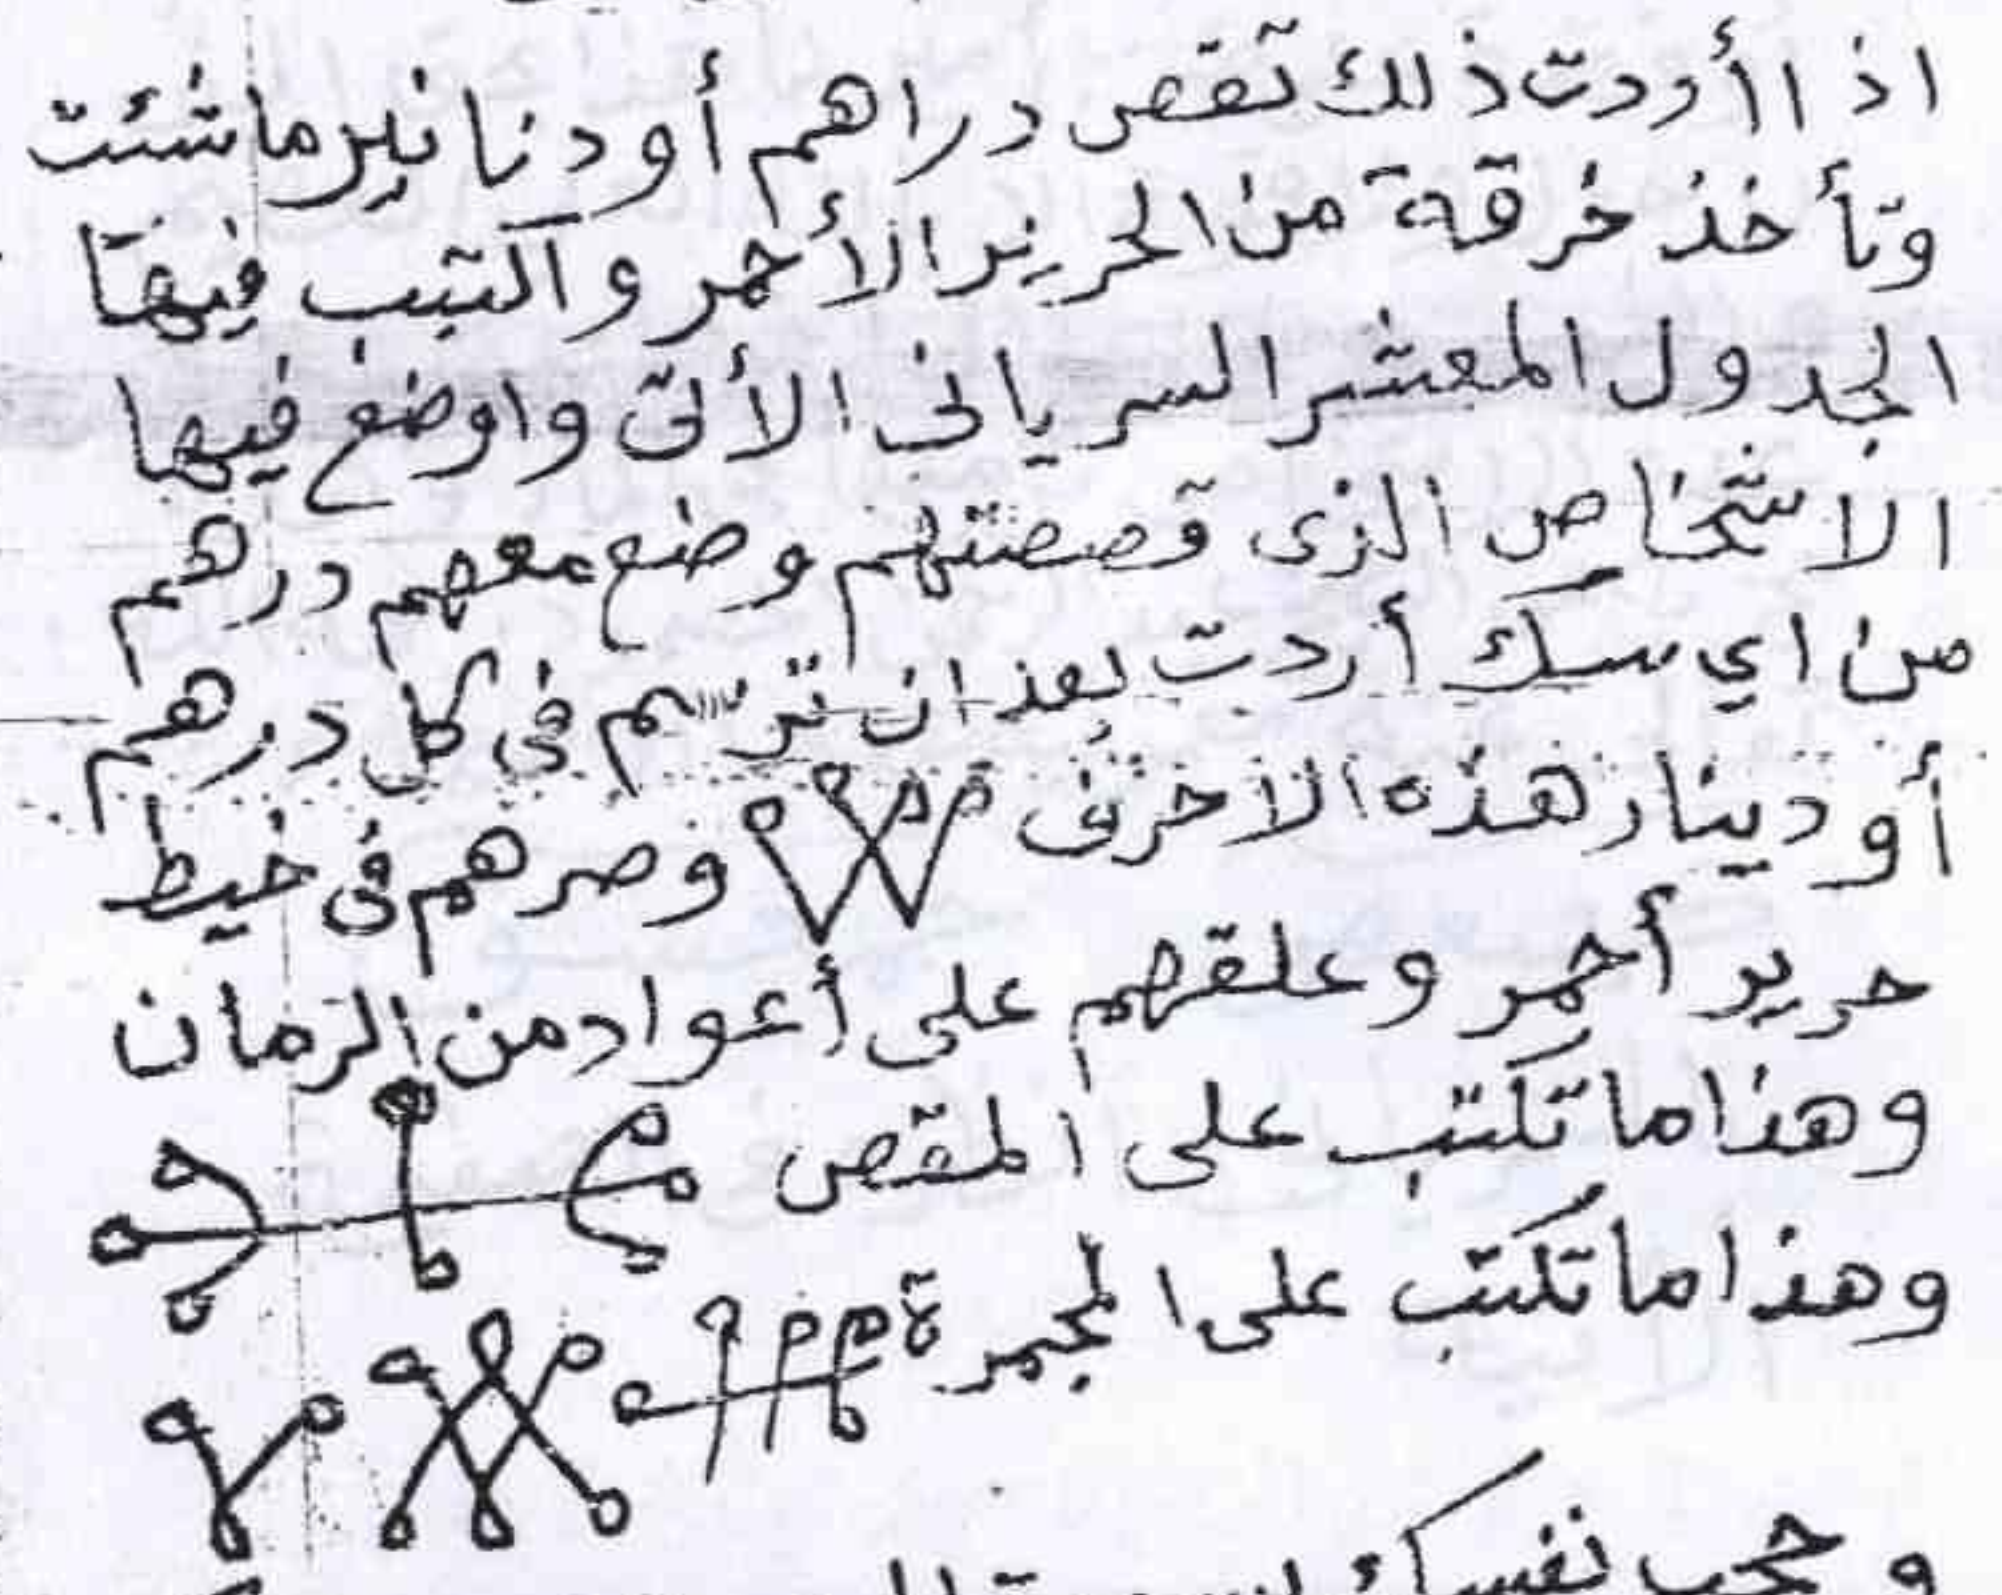 اذا أردت ذلك تقص دراهم أو دنانير ما شئت
وتأخذ خرقة من الحرير الأحمر واكتب فيها
الجدول المعشر السرياني الأتى واوضع فيها
الاشخاص الذى قصصتهم وضع معهم درهم
من اي سك أردت بعد ان ترسم في كل درهم
أو دينار هذه الاحرف وصرهم فى خيط
حرير أحمر وعلقهم على أعواد من الرمان
وهذا ما تكتب على المقص
وهذا ما تكتب على المجمرة
وحجب نفسك